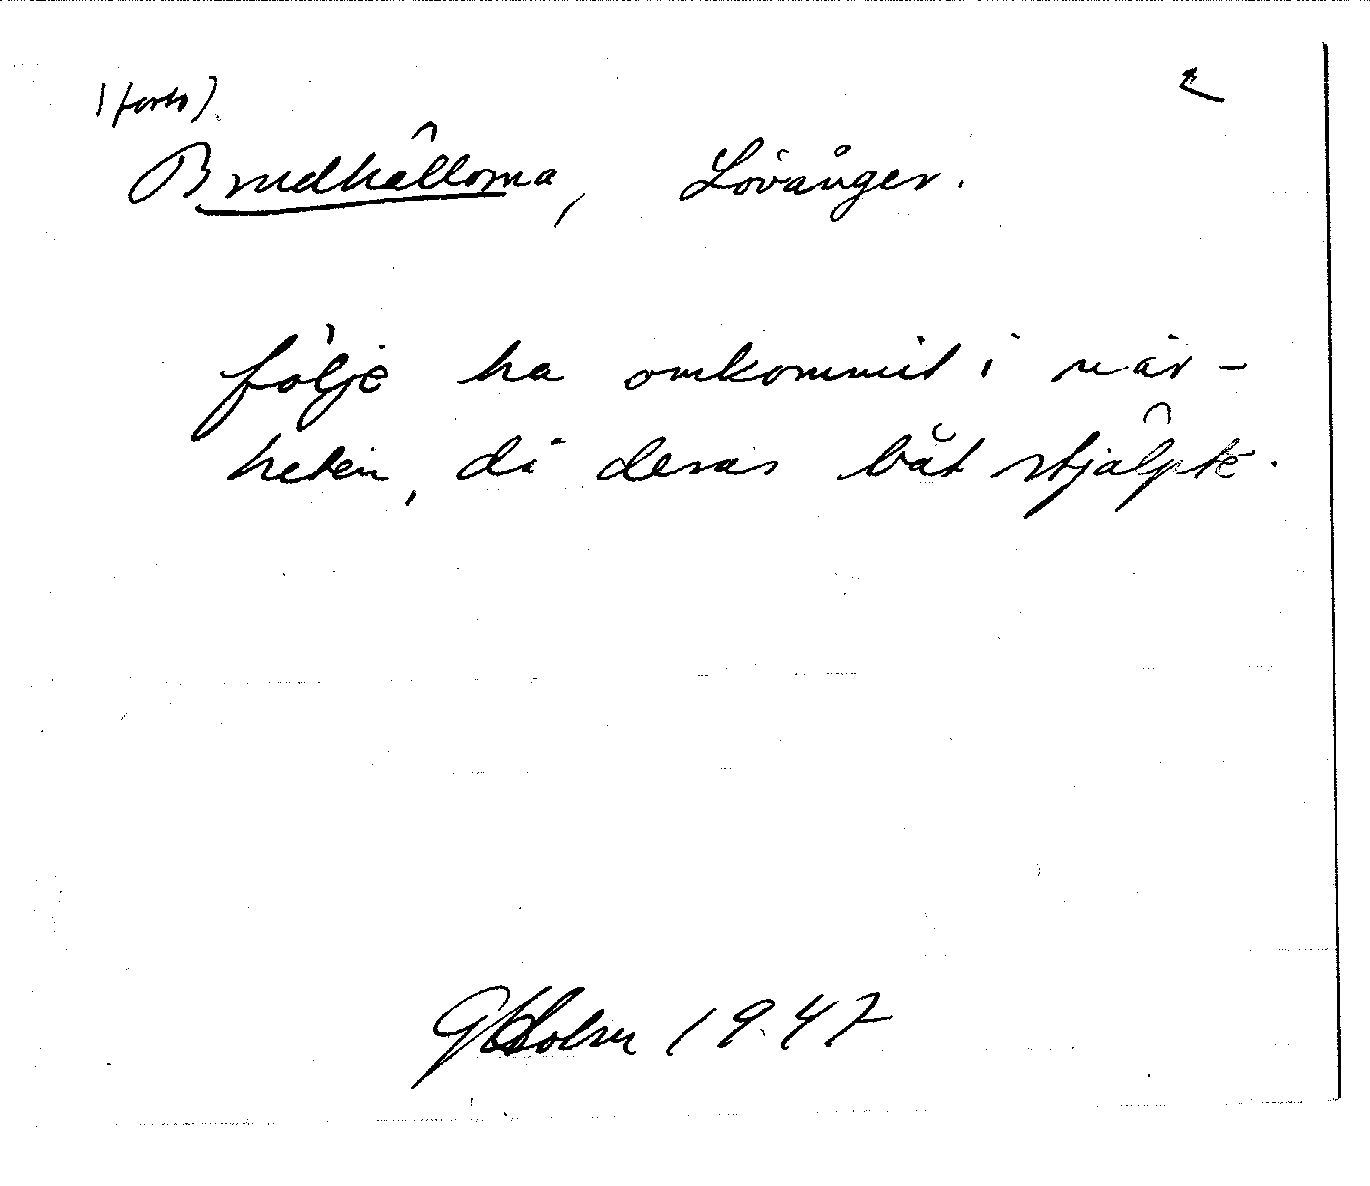 (forts)
2
Brudhälloma, Lövånger.
följe ha omkommit i när-
heten, då deras båt stjälpte.
G Holm 1947